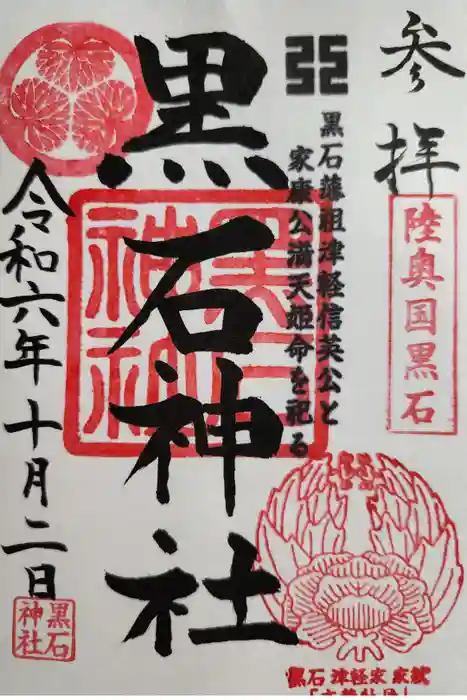 参拝
陸奥国黒石
黒石藩祖津軽信英公と
家康公満天姫命を祀る
黒石神社
黒石神社
令和六年十月二日
黒石
神社
黒石津軽家家紋